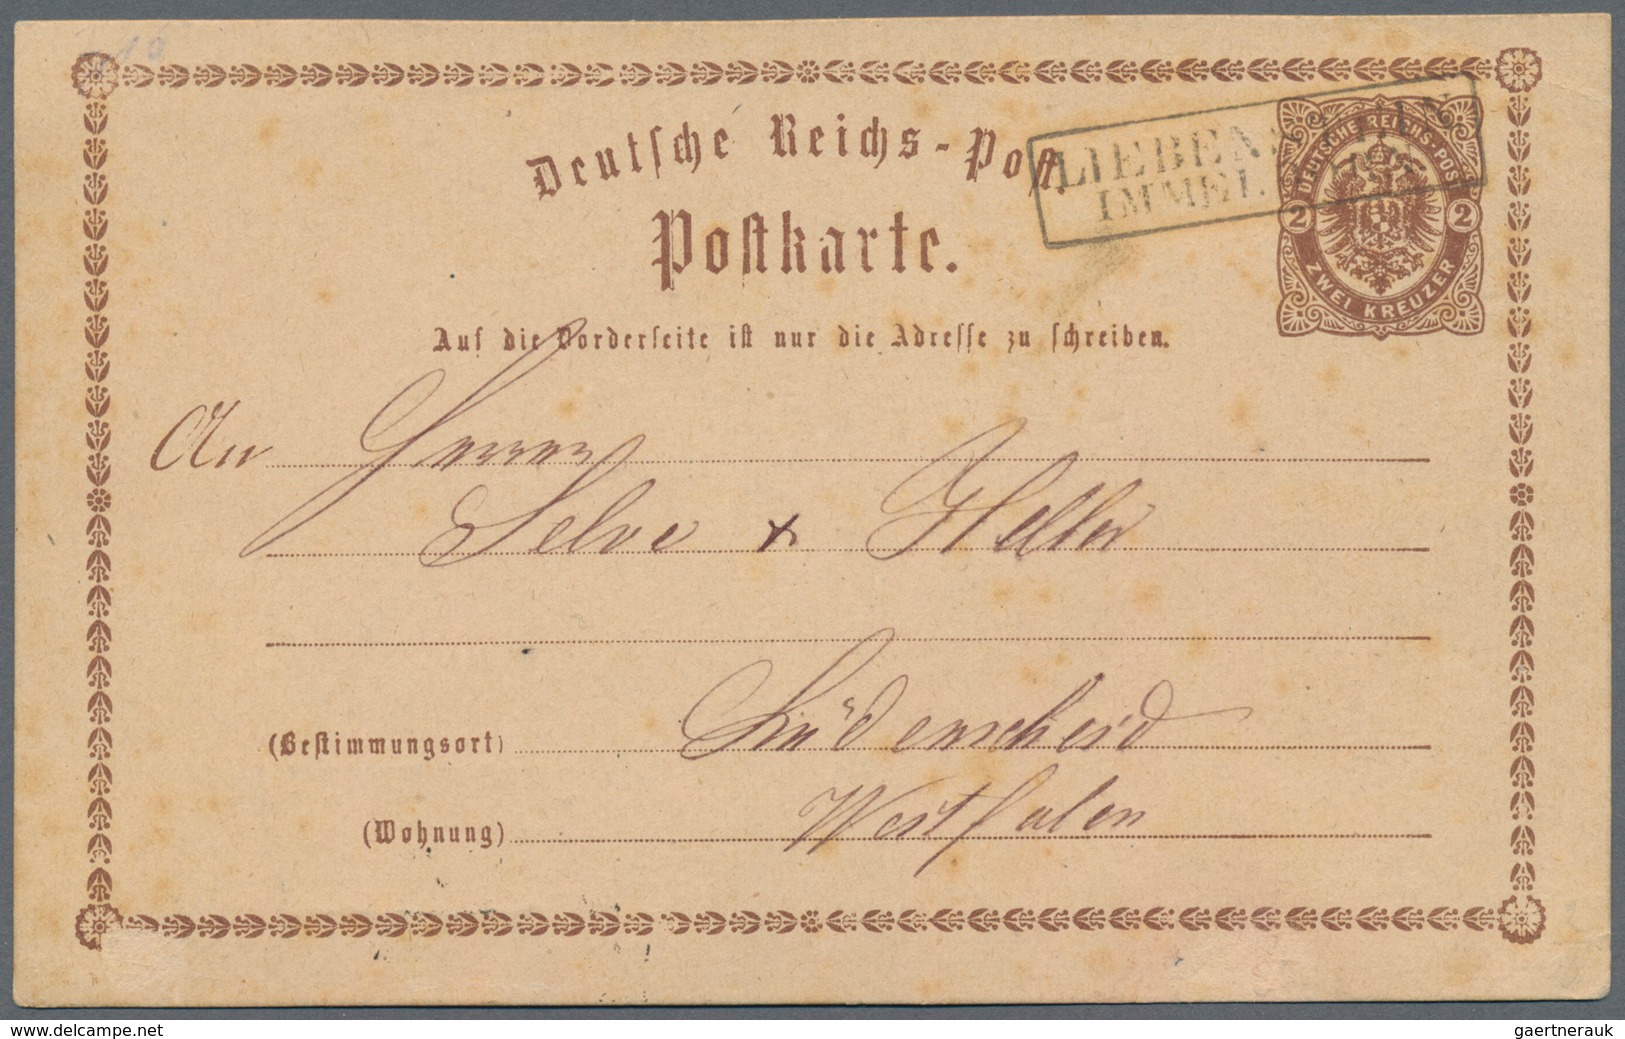 Deutsche Reichs-Post.
Postkarte.
LIEBENSTEIN
IMMEL
DEUTSCHE REICHS-POST
2 2
ZWEI KREUZER
Auf die Vorderseite ist nur die Adresse zu schreiben.
An Herren
Selve & Heller
(Bestimmungsort) Lüdenscheid
(Wohnung) Westfalen
www.delcampe.net
gaertnerauk